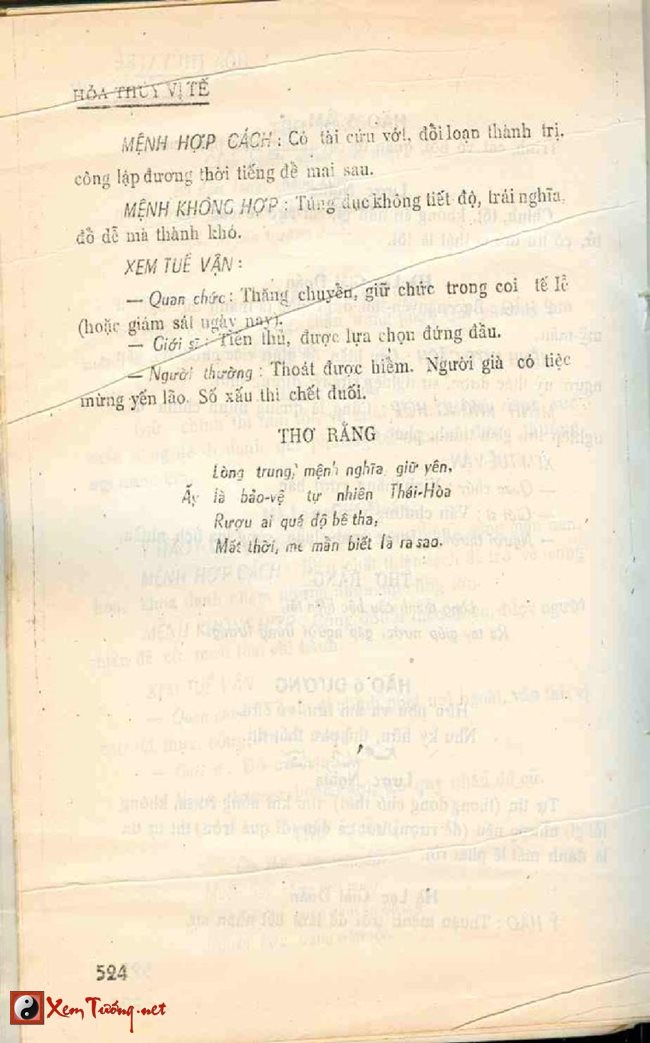 HỎA THỦY VỊ TẾ
MỆNH HỢP CÁCH : Có tài cứu vớt, đổi loạn thành trị,
công lập đương thời tiếng để mai sau.
MỆNH KHÔNG HỢP : Túng dục không tiết độ, trái nghĩa,
đồ dễ mà thành khó.
XEM TUẾ VẬN :
— Quan chức : Thăng chuyển, giữ chức trong coi tế lễ
(hoặc giám sát ngày nay).
— Giới sĩ : Tiến thủ, được lựa chọn đứng đầu.
— Người thường : Thoát được hiểm. Người già có tiệc
mừng yến lão. Số xấu thì chết đuối.
THƠ RẰNG
Lòng trung, mệnh nghĩa giữ yên,
Ấy là bảo-vệ tự nhiên Thái-Hòa
Rượu ai quá độ bê tha,
Mất thời, mê mẩn biết là ra sao.
524
XemTướng.net